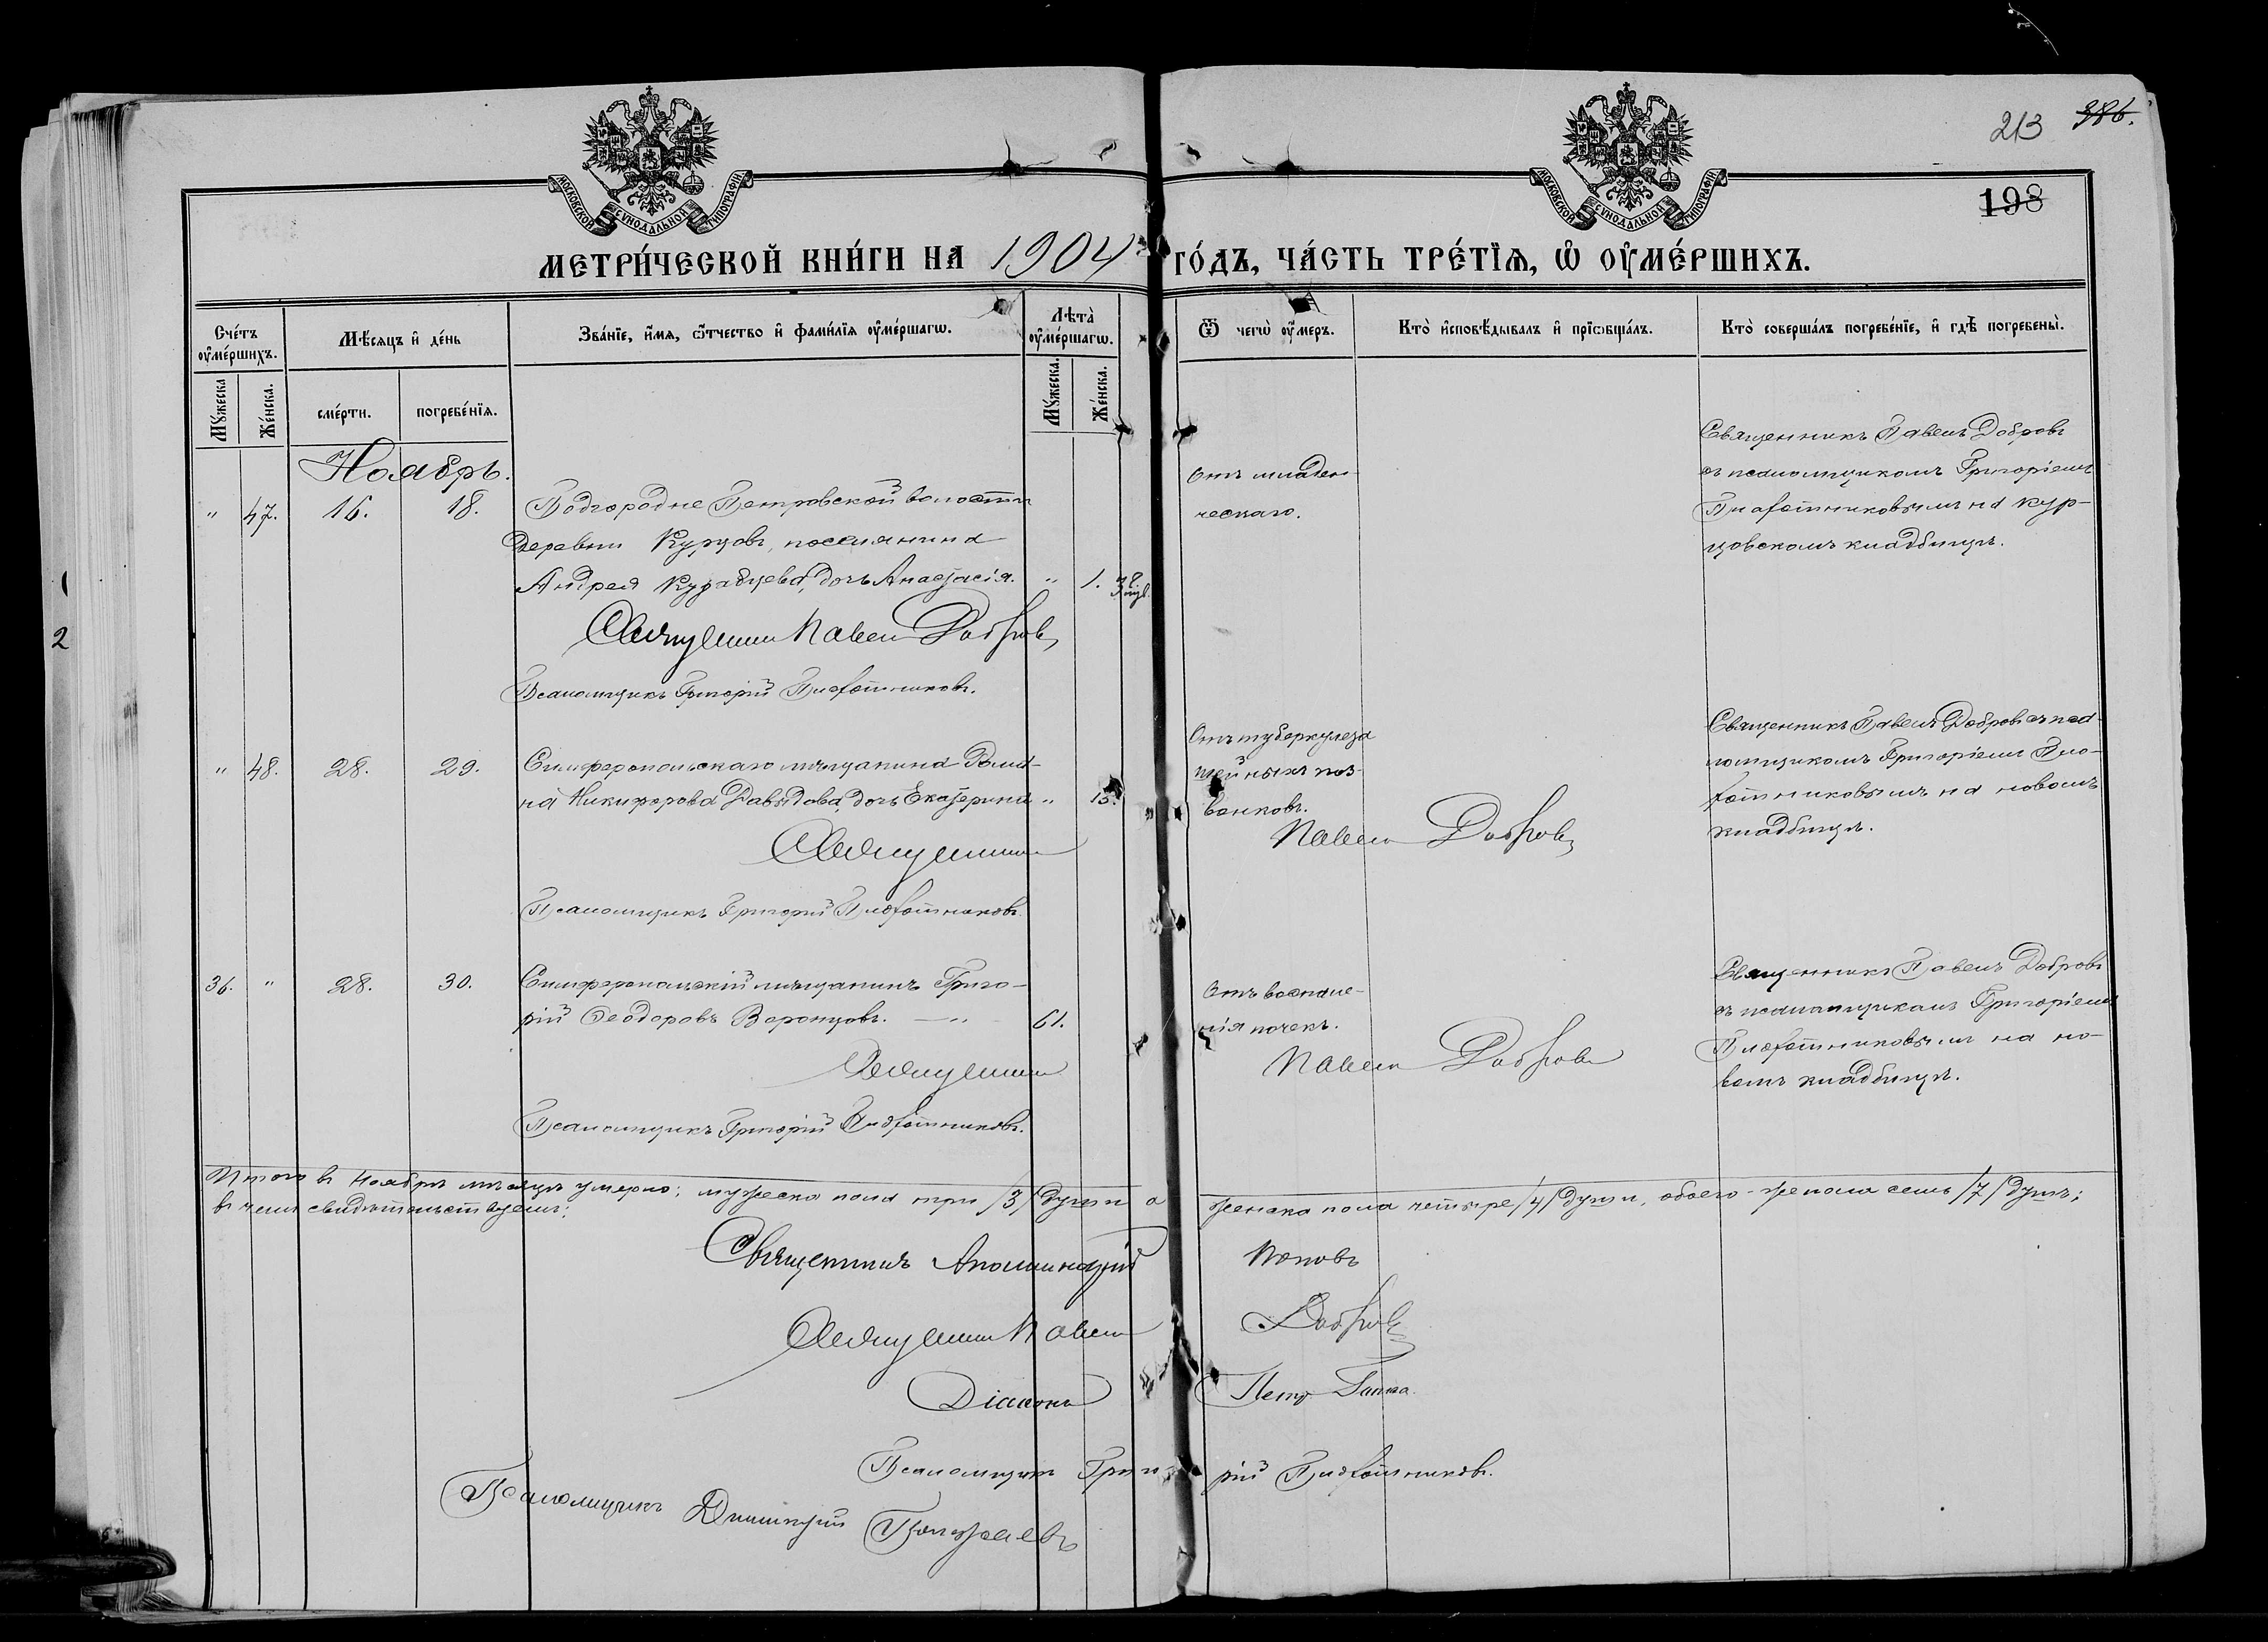 213 386.
198
МОСКОВСКОЙ СѴНОДАЛЬНОЙ ТИПОГРАФІИ
МОСКОВСКОЙ СѴНОДАЛЬНОЙ ТИПОГРАФІИ
МЕТРИ́ЧЕСКОЙ КНИ́ГИ НА 1904 ГО́ДЪ, ЧА́СТЬ ТРЕ́ТЇѦ, Ѡ҆ ОУ҆МЕ́РШИХЪ.
Сче́тъ оу҆ме́ршихъ.
Мѣ́сяцъ и҆ де́нь
Зва́нїе, и҆́мя, ѻ҆́тчество и҆ фами́лїя оу҆ме́ршагѡ.
Лѣта̀ оу҆ме́ршагѡ.
Ѿ чегѡ̀ оу҆́меръ.
Кто̀ и҆сповѣ́дывалъ и҆ прїѡбща́лъ.
Кто̀ соверша́лъ погребе́нїе, и҆ гдѣ̀ погребены̀.
Мꙋ́жеска
Же́нска.
сме́рти.
погребе́нїя.
Мꙋ́жеска.
Же́нска.
Ноябрь.
" 47. 16. 18. Подгородне Петровской волости
деревни Курцовъ, поселянина
Андрея Куравцева, дочь Анастасія. " 1.
Священникъ Павелъ Добровъ
Псаломщикъ Григорій Плохотниковъ.
От младен-
ческаго.
Священникъ Павелъ Добровъ
съ псаломщикомъ Григоріемъ
Плохотниковымъ на Кур-
цовскомъ кладбищѣ.
" 48. 28. 29. Симферопольскаго мѣщанина Рома-
на Никифорова Давыдова, дочь Екатерина " 15.
Священникъ
Псаломщикъ Григорій Плохотниковъ.
Отъ туберкулеза
шейныхъ поз-
вонковъ.
Павелъ Добровъ
Священникъ Павелъ Добровъ съ пса-
ломщикомъ Григоріемъ Пло-
хотниковымъ на новомъ
кладбищѣ.
36. " 28. 30. Симферопольскій мѣщанинъ Григо-
рій Ѳеодоровъ Воронцовъ. — " 61.
Священникъ
Псаломщикъ Григорій Плохотниковъ.
Отъ воспале-
нія почекъ.
Павелъ Добровъ
Священникъ Павелъ Добровъ
съ псаломщикомъ Григоріемъ
Плохотниковымъ на но-
вомъ кладбищѣ.
Итого въ Ноябрѣ мѣсяцѣ умерло: мужеска пола три /3/ души а женска пола четыре /4/ души, обоего-же пола семь /7/ душъ;
въ чемъ свидѣтельствуемъ:
Священникъ Аполлинарій Поповъ
Священникъ Павелъ Добровъ
Діаконъ Петръ
Псаломщикъ Григорій Плохотниковъ.
Псаломщикъ Димитрій
2